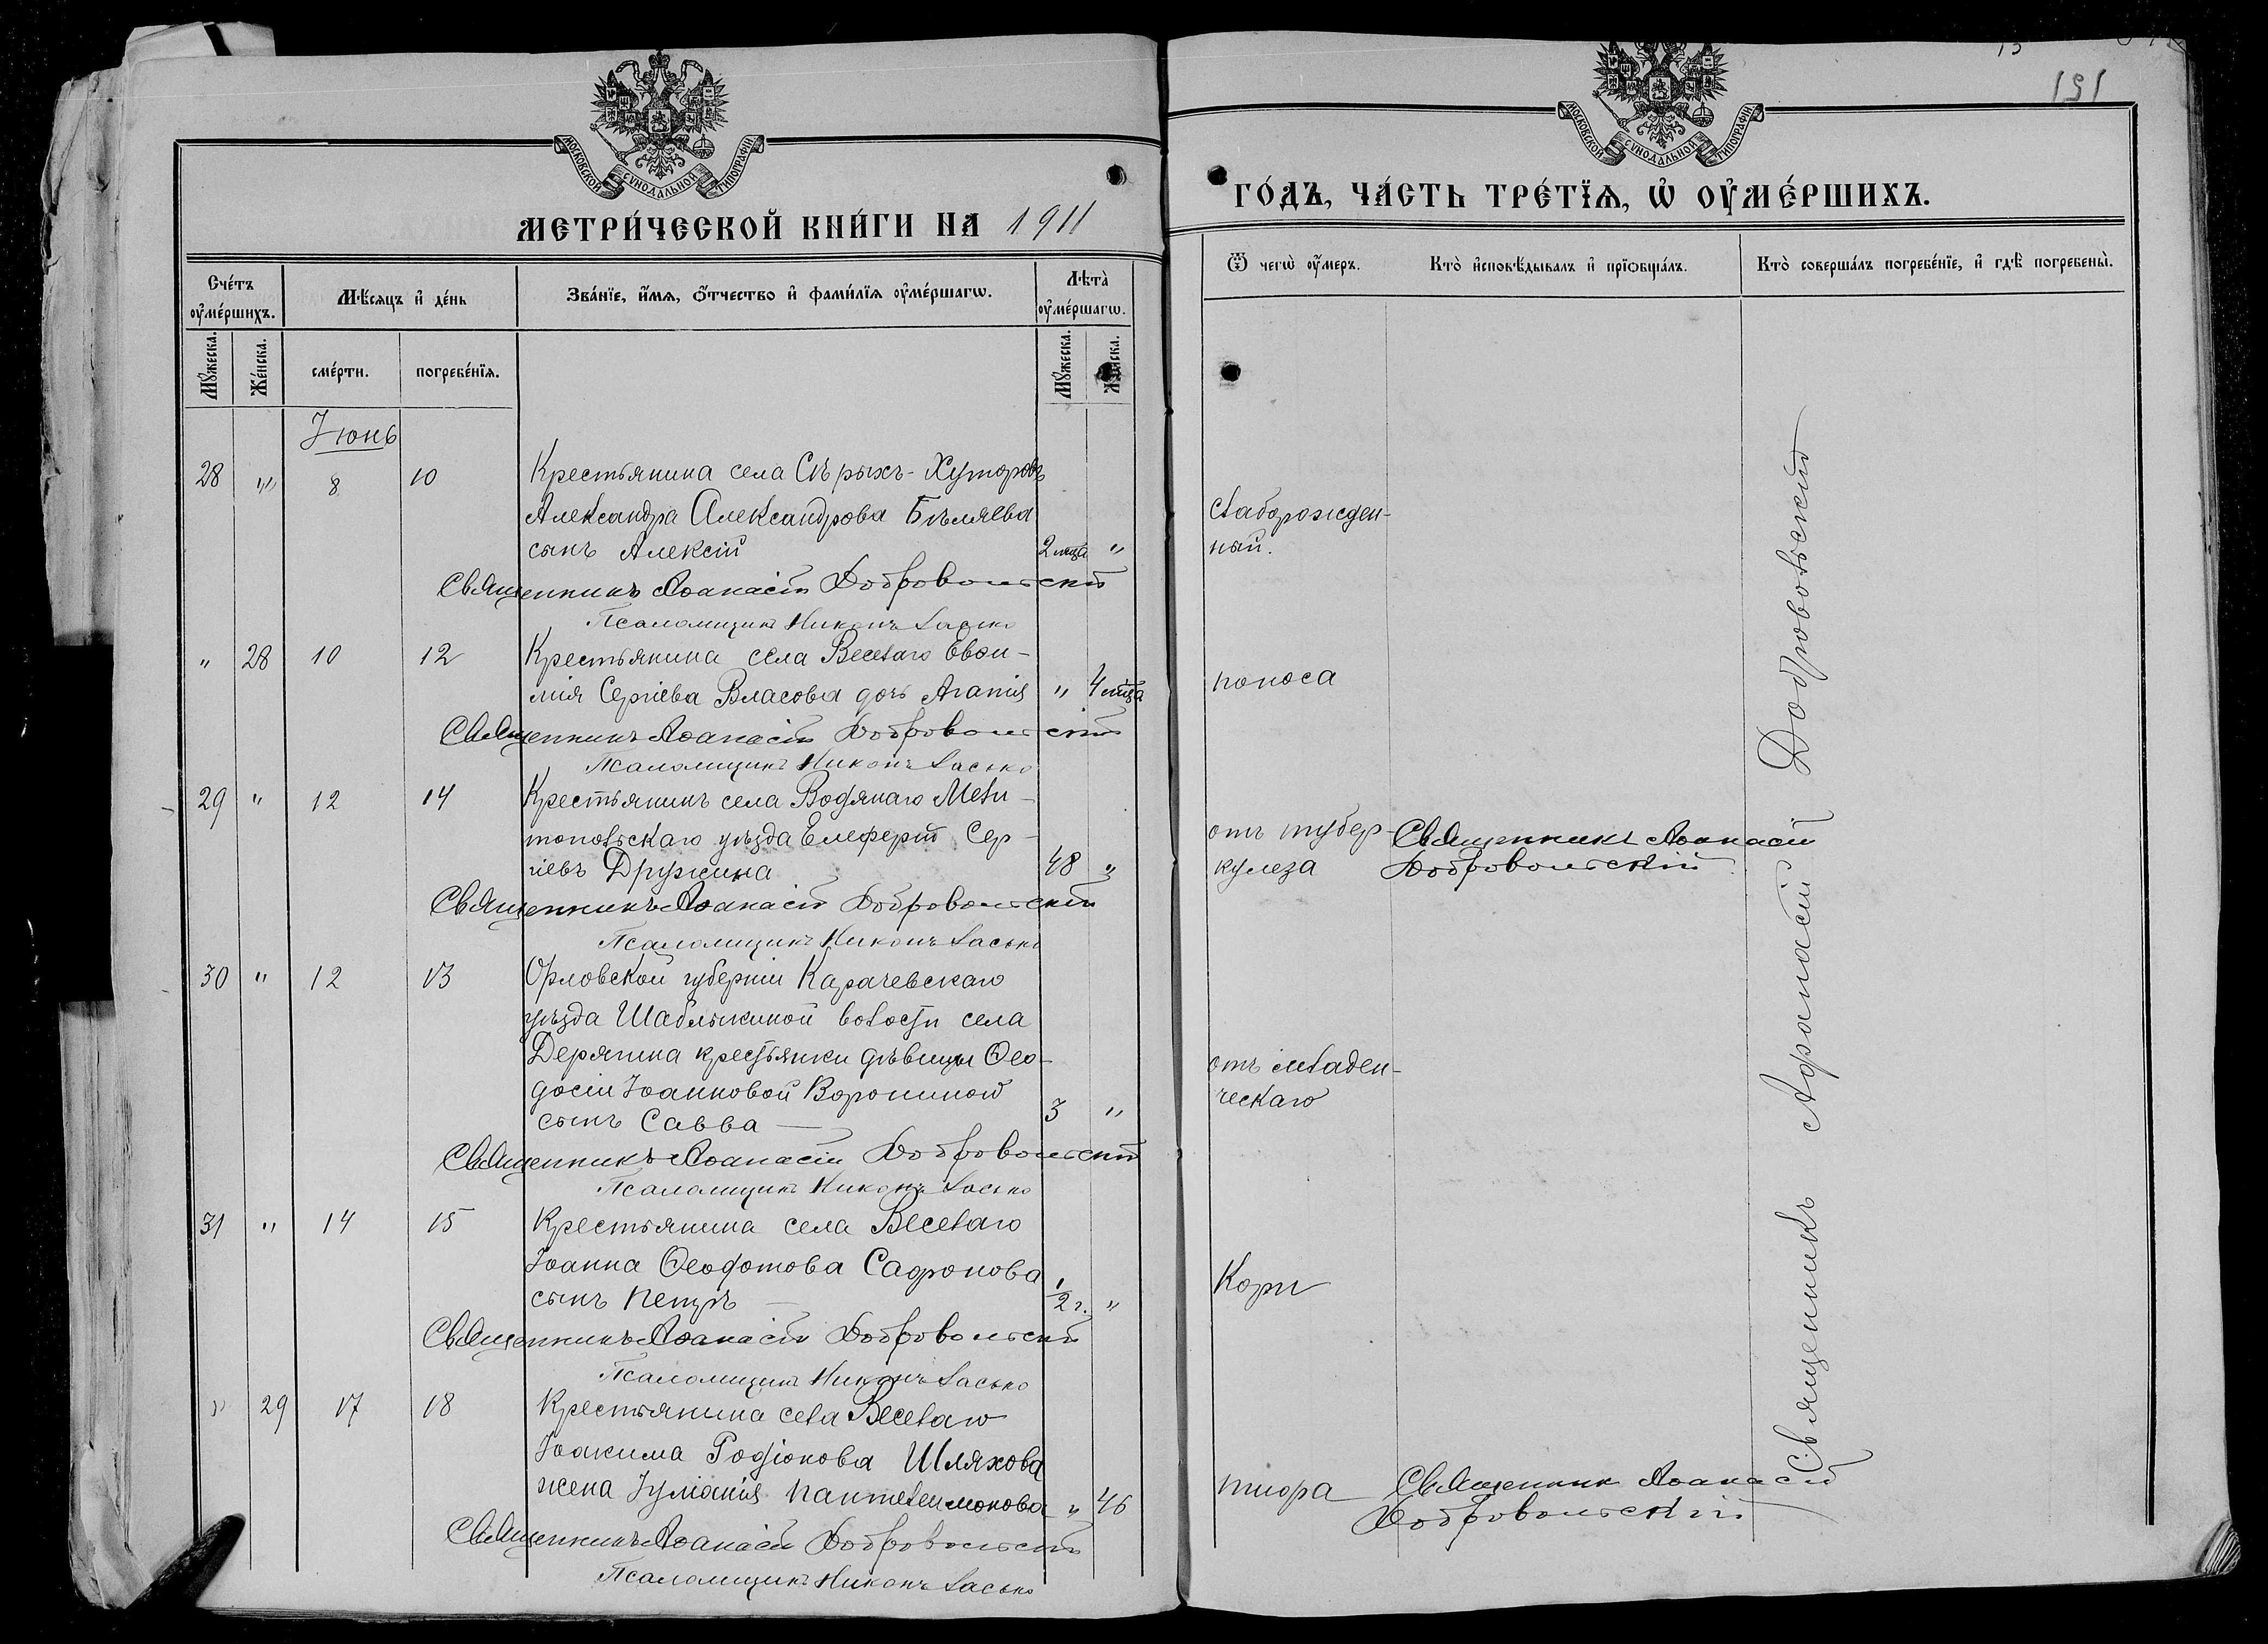 МОСКОВСКОЙ СѴНОДАЛЬНОЙ ТИПОГРАФІИ
МЕТРИ́ЧЕСКОЙ КНИ́ГИ НА 1911
Сче́тъ ᲂу҆ме́ршихъ.
Мѣ́сяцъ и҆ де́нь
Зва́нїе, и҆́мѧ, ѻ҆́тчество и҆ фами́лїѧ ᲂу҆ме́ршагѡ.
Лѣта̀ ᲂу҆ме́ршагѡ.
Мꙋ́жеска.
Же́нска.
сме́рти.
погребе́нїѧ.
Мꙋ́жеска.
Же́нска.
Іюнь
28 " 8 10 Крестьянина села Сѣрыхъ-Хуторовъ
Александра Александрова Бѣляева
сынъ Алексій 2 мѣца "
Священникъ Аѳанасій Добровольскій
Псаломщикъ Никонъ Ласько
" 28 10 12 Крестьянина села Веселаго Евѳи-
мія Сергіева Власова дочь Агапія " 4 мѣца
Священникъ Аѳанасій Добровольскій
Псаломщикъ Никонъ Ласько
29 " 12 14 Крестьянинъ села Водянаго Мели-
топольскаго уѣзда Елеферій Сер-
гіевъ Дружина 48 "
Священникъ Аѳанасій Добровольскій
Псаломщикъ Никонъ Ласько
30 " 12 13 Орловской губерніи Карачевскаго
уѣзда Шаблыкиной волости села
Дерягина крестьянки дѣвицы Ѳео-
досіи Іоанновой Ворониной
сынъ Савва 3 "
Священникъ Аѳанасій Добровольскій
Псаломщикъ Никонъ Ласько
31 " 14 15 Крестьянина села Веселаго
Іоанна Ѳеодотова Сафронова
сынъ Петръ 1/2 г. "
Священникъ Аѳанасій Добровольскій
Псаломщикъ Никонъ Ласько
" 29 17 18 Крестьянина села Веселаго
Іоакима Родіонова Шляхова
жена Іуліанія Пантелеимонова " 46
Священникъ Аѳанасій Добровольскій
Псаломщикъ Никонъ Ласько
191
МОСКОВСКОЙ СѴНОДАЛЬНОЙ ТИПОГРАФІИ
ГО́ДЪ, ЧА́СТЬ ТРЕ́ТЇѦ, Ѡ҆ ОУ҆МЕ́РШИХЪ.
Ѿ чегѡ̀ ᲂу҆́меръ.
Кто̀ и҆сповѣ́дывалъ и҆ прїѡбща́лъ.
Кто̀ соверша́лъ погребе́нїе, и҆ гдѣ̀ погребены̀.
слаборожден-
ный.
поноса
отъ тубер-
кулеза
Священникъ Аѳанасій
Добровольскій
отъ младен-
ческаго
Кори
тифа
Священник Аѳанасій
Добровольскій
Священникъ Афанасій Добровольскій